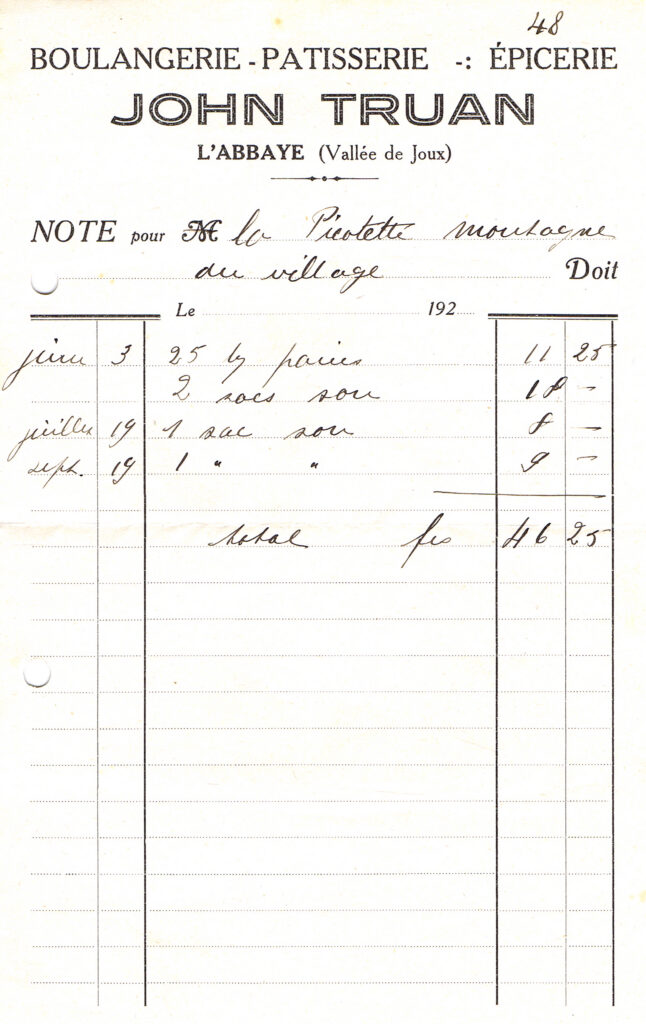 48
BOULANGERIE - PATISSERIE -: ÉPICERIE
JOHN TRUAN
L'ABBAYE (Vallée de Joux)
NOTE pour M la Picotette montagne
du village Doit
Le 192
juin 3 25 kg 11 25
2 sacs son 18 –
juillet 19 1 sac son 8 –
sept. 19 1 " " 9 –
total frs 46 25